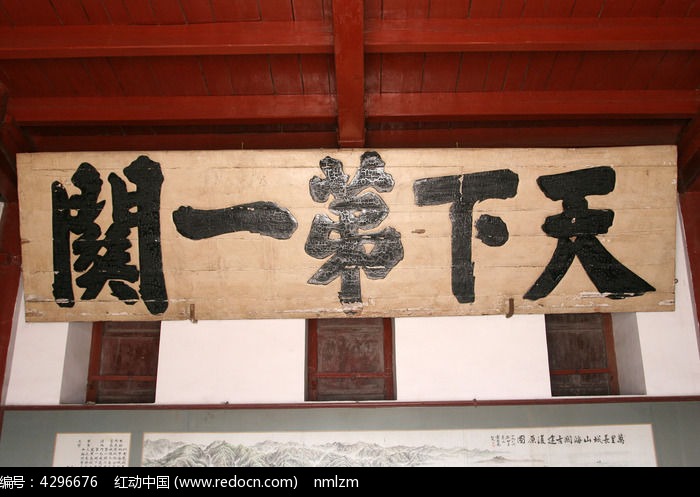 天下第一關
萬里長城山海關古建復原圖
编号: 4296676 红动中国 (www.redocn.com) nmlzm